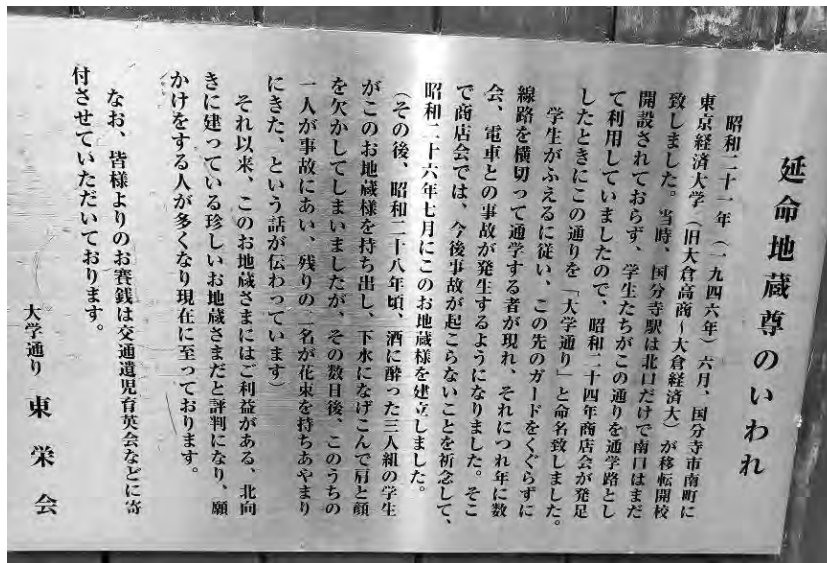 延命地蔵尊のいわれ
昭和二十一年（一九四六年）六月、国分寺市南町に
東京経済大学（旧大倉高商～大倉経済大）が移転開校
致しました。当時、国分寺駅は北口だけで南口はまだ
開設されておらず、学生たちがこの通りを通学路とし
て利用していましたので、昭和二十四年商店会が発足
したときにこの通りを「大学通り」と命名致しました。
学生がふえるに従い、この先のガードをくぐらずに
線路を横切って通学する者が現れ、それにつれ年に数
会、電車との事故が発生するようになりました。そこ
で商店会では、今後事故が起こらないことを祈念して、
昭和二十六年七月にこのお地蔵様を建立しました。
（その後、昭和二十八年頃、酒に酔った三人組の学生
がこのお地蔵様を持ち出し、下水になげこんで肩と顔
を欠かしてしまいましたが、その数日後、このうちの
一人が事故にあい、残りの二名が花束を持ちあやまり
にきた、という話が伝わっています）
それ以来、このお地蔵さまにはご利益がある、北向
きに建っている珍しいお地蔵さまだと評判になり、願
かけをする人が多くなり現在に至っております。
なお、皆様よりのお賽銭は交通遺児育英会などに寄
付させていただいております。
大学通り 東栄会